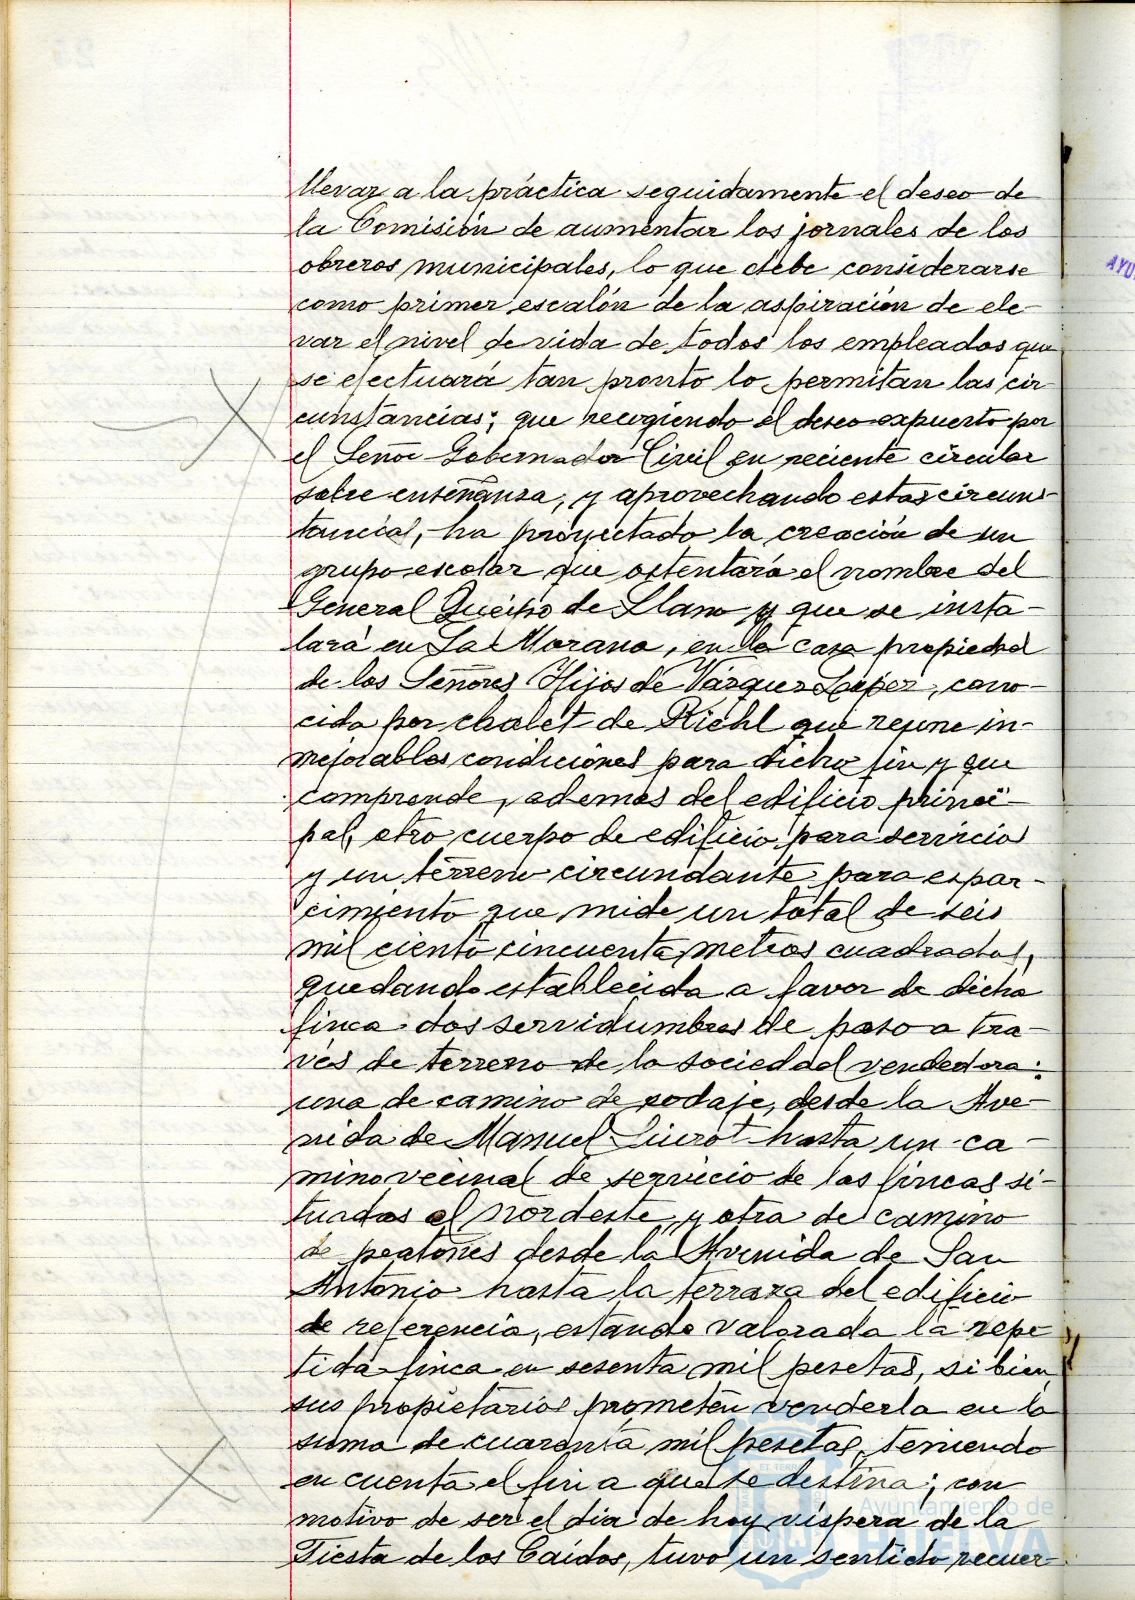 llevar a la práctica seguidamente el deseo de
la Comisión de aumentar los jornales de los
obreros municipales, lo que debe considerarse
como primer escalón de la aspiración de ele-
var el nivel de vida de todos los empleados que
se efectuará tan pronto lo permitan las cir-
cunstancias; que recogiendo el deseo expuesto por
el Señor Gobernador Civil en reciente circular
sobre enseñanza, y aprovechando estas circuns-
tancias, ha proyectado la creación de un
grupo escolar que ostentará el nombre del
General Queipo de Llano y que se insta-
lará en La Morana, en la casa propiedad
de los Señores Hijos de Vázquez López, cono-
cida por chalet de Riehl que reune in-
mejorables condiciones para dicho fin y que
comprende, ademas del edificio princi-
pal, otro cuerpo de edificio para servicios
y un terreno circundante para espar-
cimiento que mide un total de seis
mil ciento cincuenta metros cuadrados,
quedando establecida a favor de dicha
finca dos servidumbres de paso a tra-
vés de terreno de la sociedad vendedora:
una de camino de rodaje, desde la Ave-
nida de Manuel Siurot hasta un ca-
mino vecinal de servicio de las fincas si-
tuadas al nordeste, y otra de camino
de peatones desde la Avenida de San
Antonio hasta la terraza del edificio
de referencia, estando valorada la repe-
tida finca en sesenta mil pesetas, si bien
sus propietarios prometen venderla en la
suma de cuarenta mil pesetas, teniendo
en cuenta el fin a que se destina; con
motivo de ser el dia de hoy víspera de la
Fiesta de los Caídos, tuvo un sentido recuer-
AYU
Ayuntamiento de
HUELVA